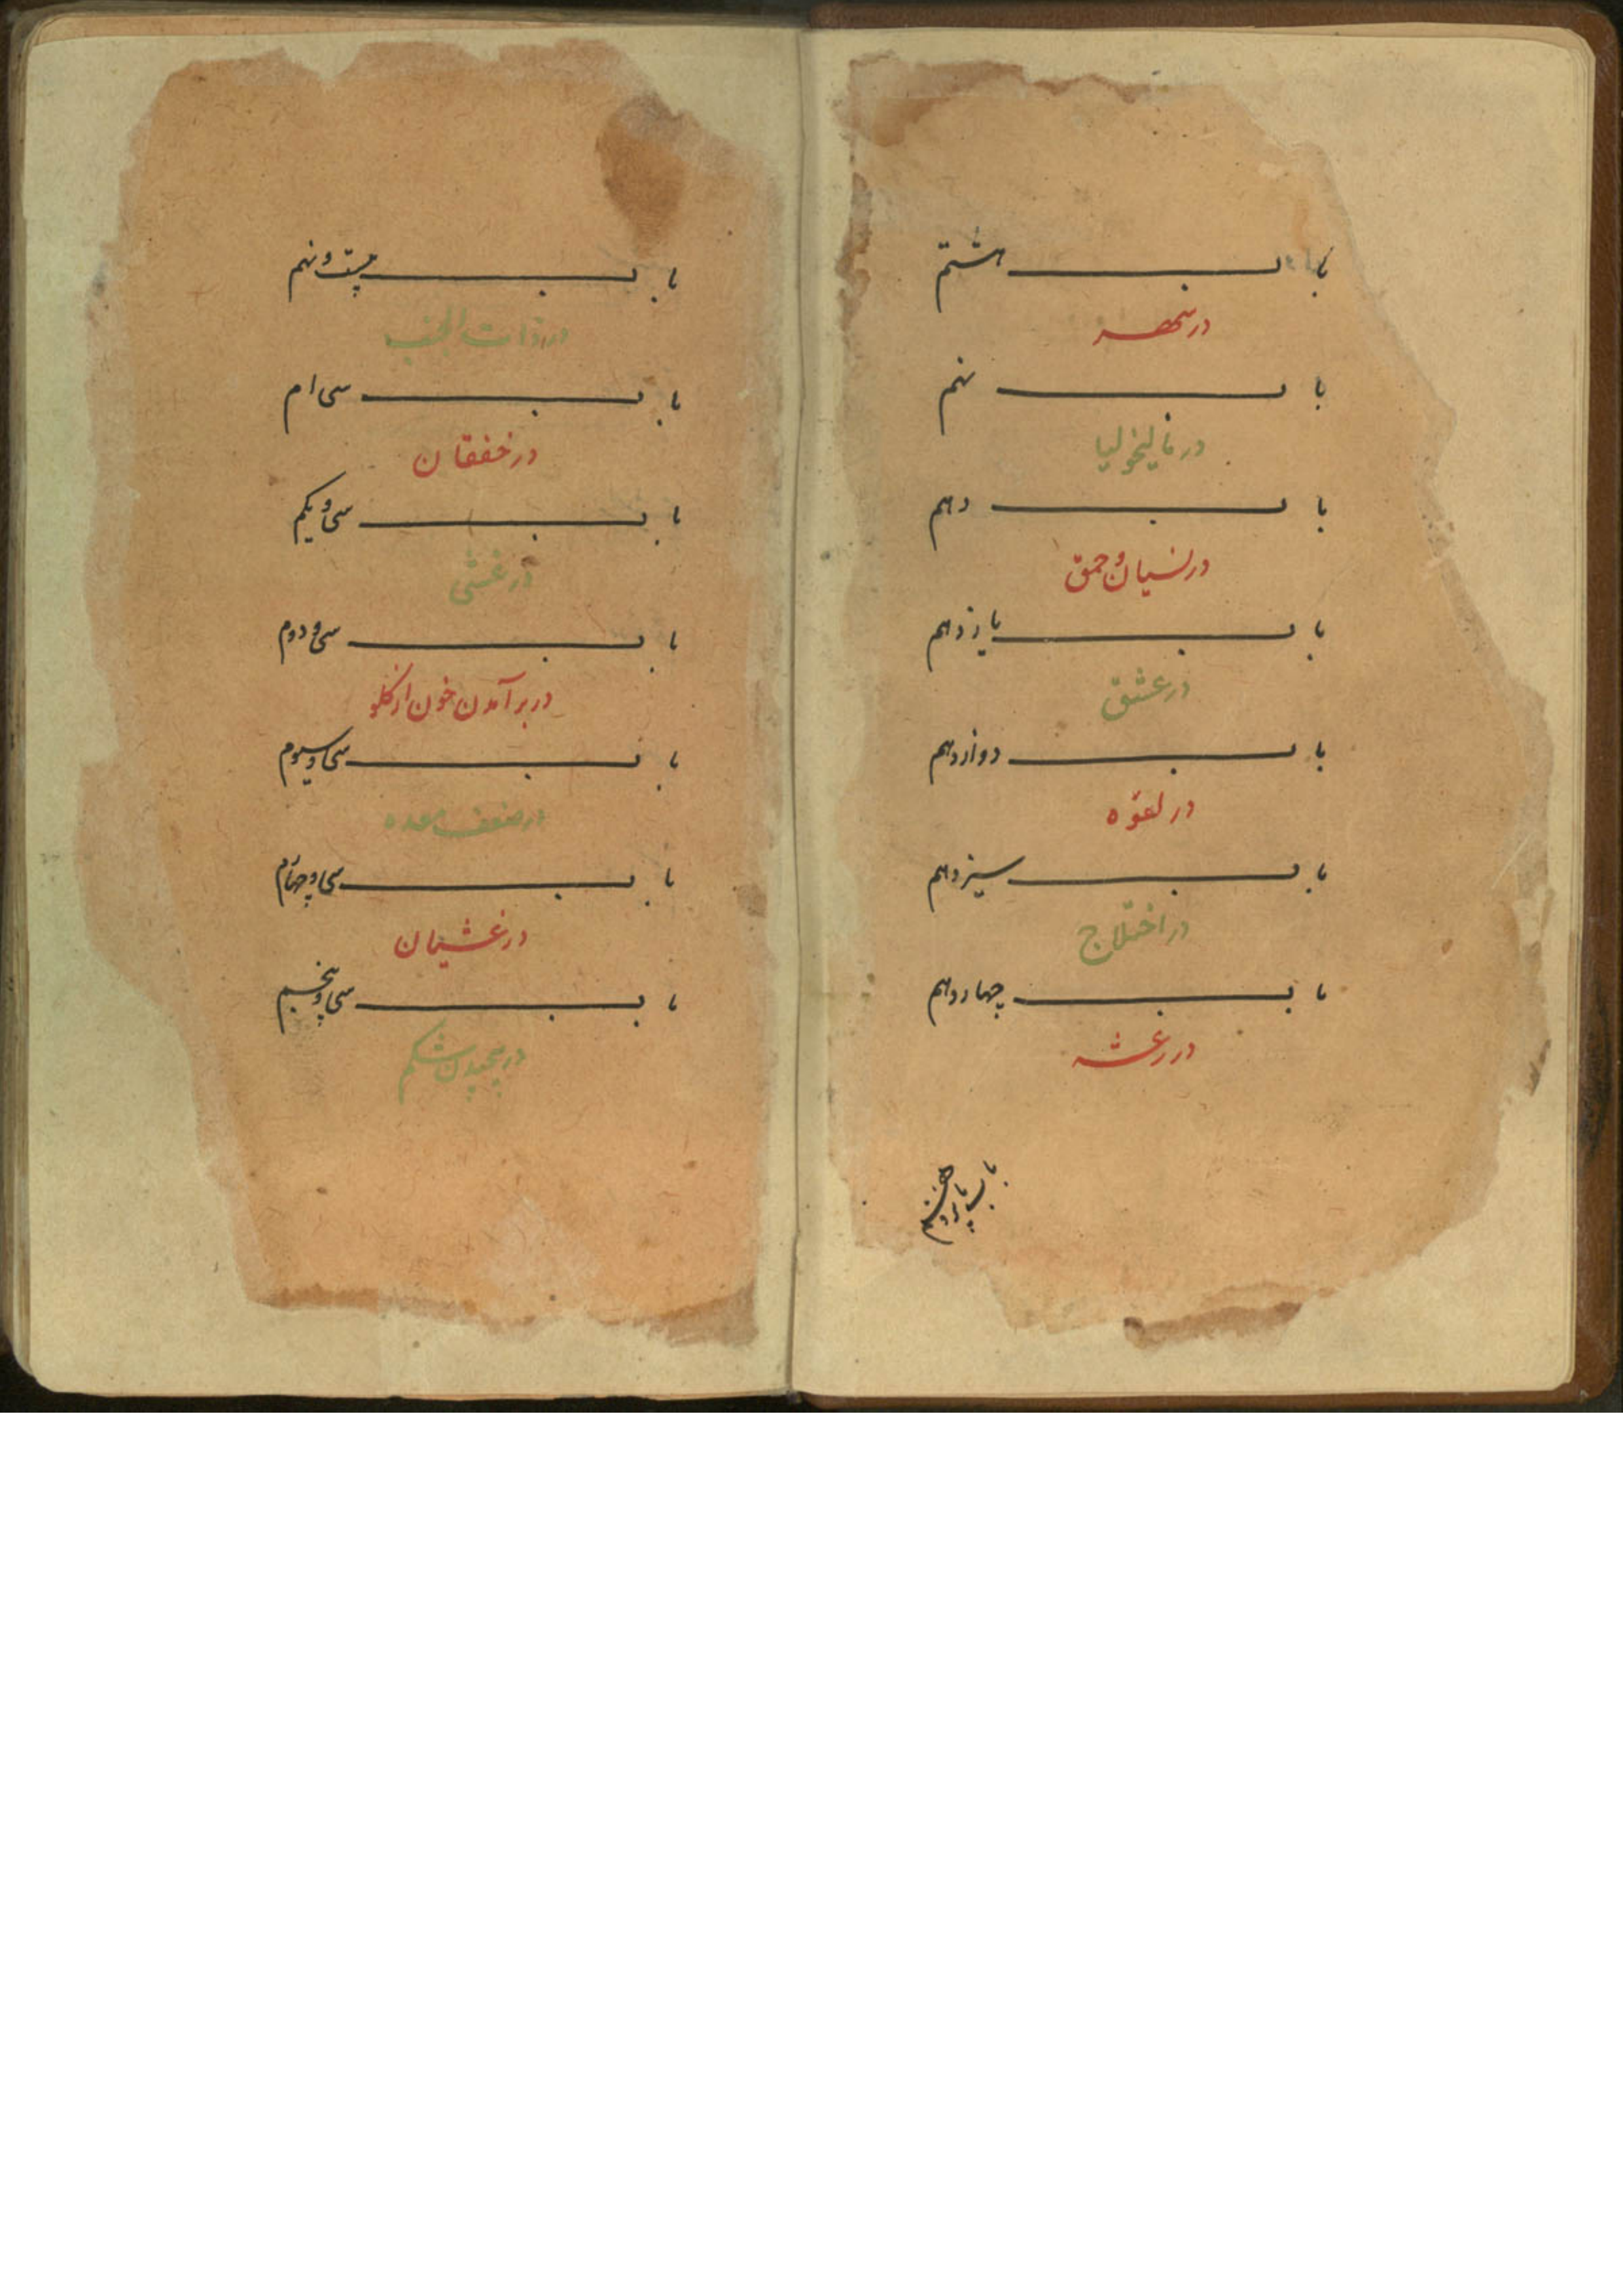 باب هشتم
در سهر
باب نهم
در مالیخولیا
باب دهم
در نسیان و حمق
باب یازدهم
در عشق
باب دوازدهم
در لقوه
باب سیزدهم
در اختلاج
باب چهاردهم
در رعشه
باب پانزدهم
باب بیست و نهم
در ذات الجنب
باب سی ام
در خفقان
باب سی و یکم
در غشی
باب سی و دوم
در بر آمدن خون از کلو
باب سی و سیوم
در ضعف معده
باب سی و چهارم
در غشیان
باب سی و پنجم
در پیچیدن شکم